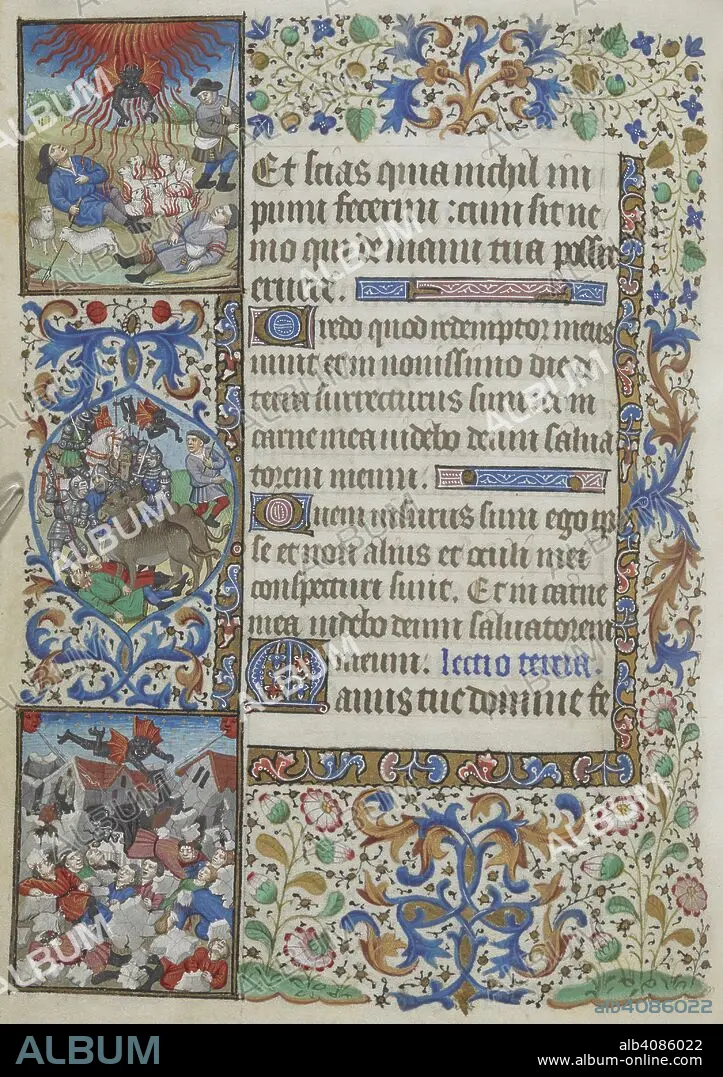 Et scias quia nichil im
pium fecerim : cum sit ne
mo qui de manu tua possit
eruere.
Credo quod redemptor meus
uiuit et in nouissimo die de
terra surrecturus sum et in
carne mea uidebo deum salua
torem meum.
Quem uisurus sum ego ip
se et non alius et oculi mei
conspecturi sunt. Et in carne
mea uidebo deum saluatorem
meum. lectio tertia.
Manus tue domine fe
alb4086022
ALBUM
alb4086022
www.album-online.com